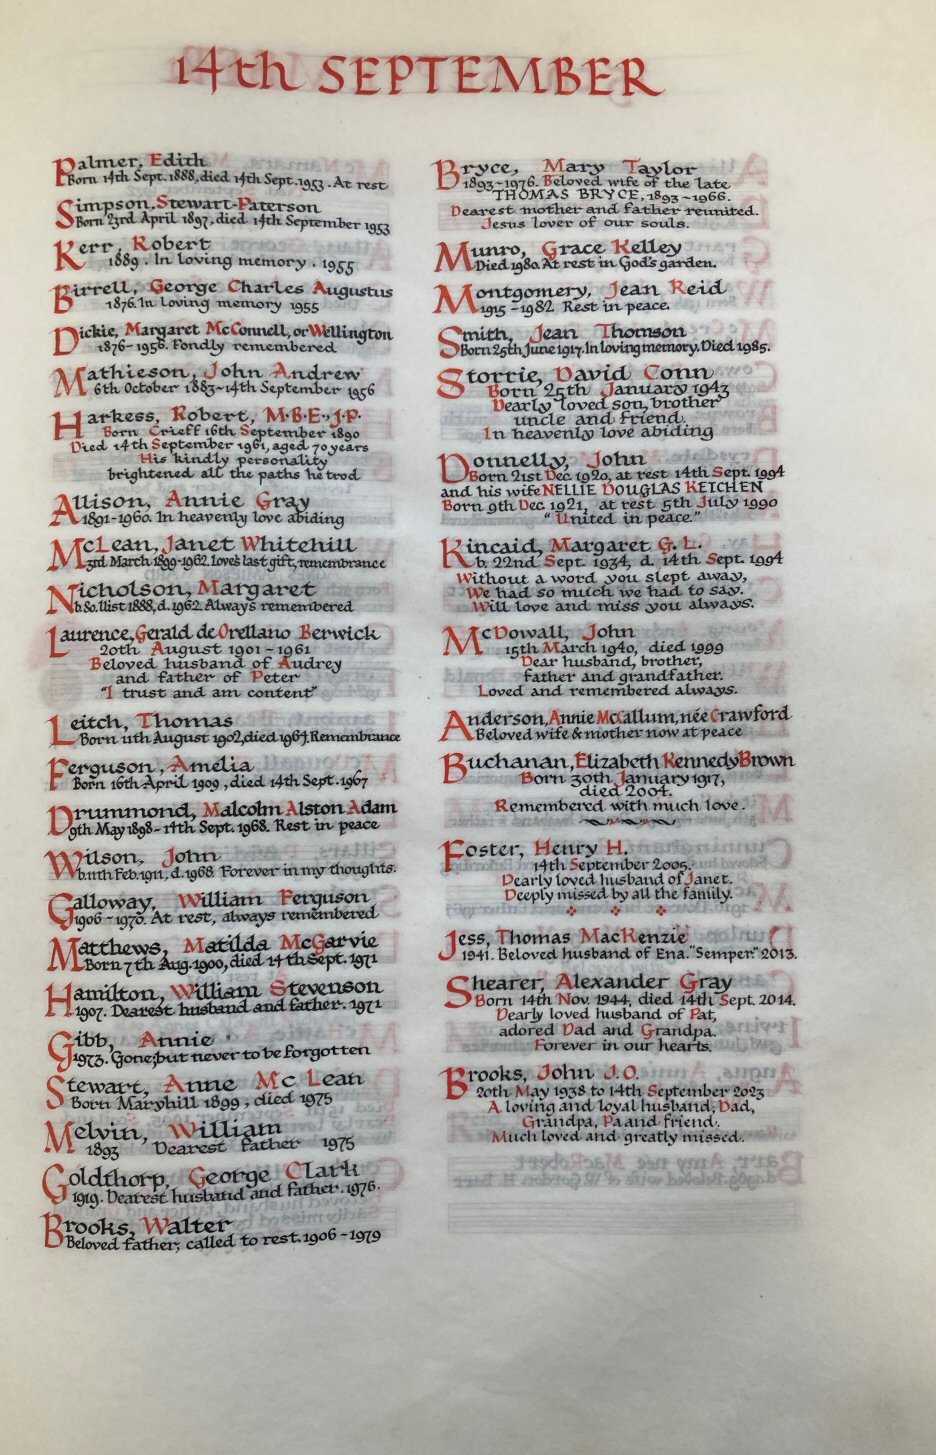 14th SEPTEMBER
Palmer, Edith
Born 14th Sept. 1888, died 14th Sept. 1953. At rest
Simpson, Stewart-Paterson
Born 23rd April 1897, died 14th September 1953
Kerr, Robert
1889. In loving memory. 1955
Birrell, George Charles Augustus
1876. In loving memory 1955
Dickie, Margaret McConnell, or Wellington
1876-1956. Fondly remembered
Mathieson, John Andrew
6th October 1883-14th September 1956
Harkess, Robert, M·B·E·, J·P.
Born Crieff 16th September 1890
Died 14th September 1961, aged 70 years
His kindly personality
brightened all the paths he trod
Allison, Annie Gray
1891-1960. In heavenly love abiding
McLean, Janet Whitehill
3rd March 1899-1962. Love's last gift, remembrance
Nicholson, Margaret
b. So. Uist 1888, d. 1962. Always remembered
Laurence, Gerald de Orellano Berwick
20th August 1901-1961
Beloved husband of Audrey
and father of Peter
"I trust and am content"
Leitch, Thomas
Born 11th August 1902, died 1964. Remembrance
Ferguson, Amelia
Born 16th April 1909, died 14th Sept. 1967
Drummond, Malcolm Alston Adam
9th May 1898-14th Sept. 1968. Rest in peace
Wilson, John
b. 11th Feb. 1911, d. 1968 Forever in my thoughts.
Galloway, William Ferguson
1906-1970. At rest, always remembered
Matthews, Matilda McGarvie
Born 7th Aug. 1900, died 14th Sept. 1971
Hamilton, William Stevenson
1907. Dearest husband and father. 1971
Gibb, Annie
1973. Gone, but never to be forgotten
Stewart, Anne McLean
Born Maryhill 1899, died 1975
Melvin, William
1893 Dearest father 1975
Goldthorp, George Clark
1919. Dearest husband and father. 1976.
Brooks, Walter
Beloved father; called to rest. 1906-1979
Bryce, Mary Taylor
1893-1976. Beloved wife of the late
THOMAS BRYCE, 1893-1966.
Dearest mother and father reunited.
Jesus lover of our souls.
Munro, Grace Kelley
Died 1980. At rest in God's garden.
Montgomery, Jean Reid
1915-1982 Rest in peace.
Smith, Jean Thomson
Born 25th June 1917. In loving memory. Died 1985.
Storrie, David Conn
Born 25th January 1943
Dearly loved son, brother
uncle and friend.
In heavenly love abiding
Donnelly, John
Born 21st Dec. 1920, at rest 14th Sept. 1994
and his wife NELLIE DOUGLAS KETCHEN
Born 9th Dec. 1921, at rest 5th July 1990
"United in peace."
Kincaid, Margaret G. L.
b. 22nd Sept. 1934, d. 14th Sept. 1994
Without a word you slept away,
We had so much we had to say.
Will love and miss you always.
McDowall, John
15th March 1940, died 1999
Dear husband, brother,
father and grandfather.
Loved and remembered always.
Anderson, Annie McCallum, née Crawford
Beloved wife & mother now at peace
Buchanan, Elizabeth Kennedy Brown
Born 30th January 1917,
died 2004.
Remembered with much love.
Foster, Henry H.
14th September 2005.
Dearly loved husband of Janet.
Deeply missed by all the family.
Jess, Thomas MacKenzie
1941. Beloved husband of Ena. "Semper." 2013.
Shearer, Alexander Gray
Born 14th Nov. 1944, died 14th Sept. 2014.
Dearly loved husband of Pat,
adored Dad and Grandpa.
Forever in our hearts.
Brooks, John J.O.
20th May 1938 to 14th September 2023
A loving and loyal husband, Dad,
Grandpa, Pa and friend.
Much loved and greatly missed.